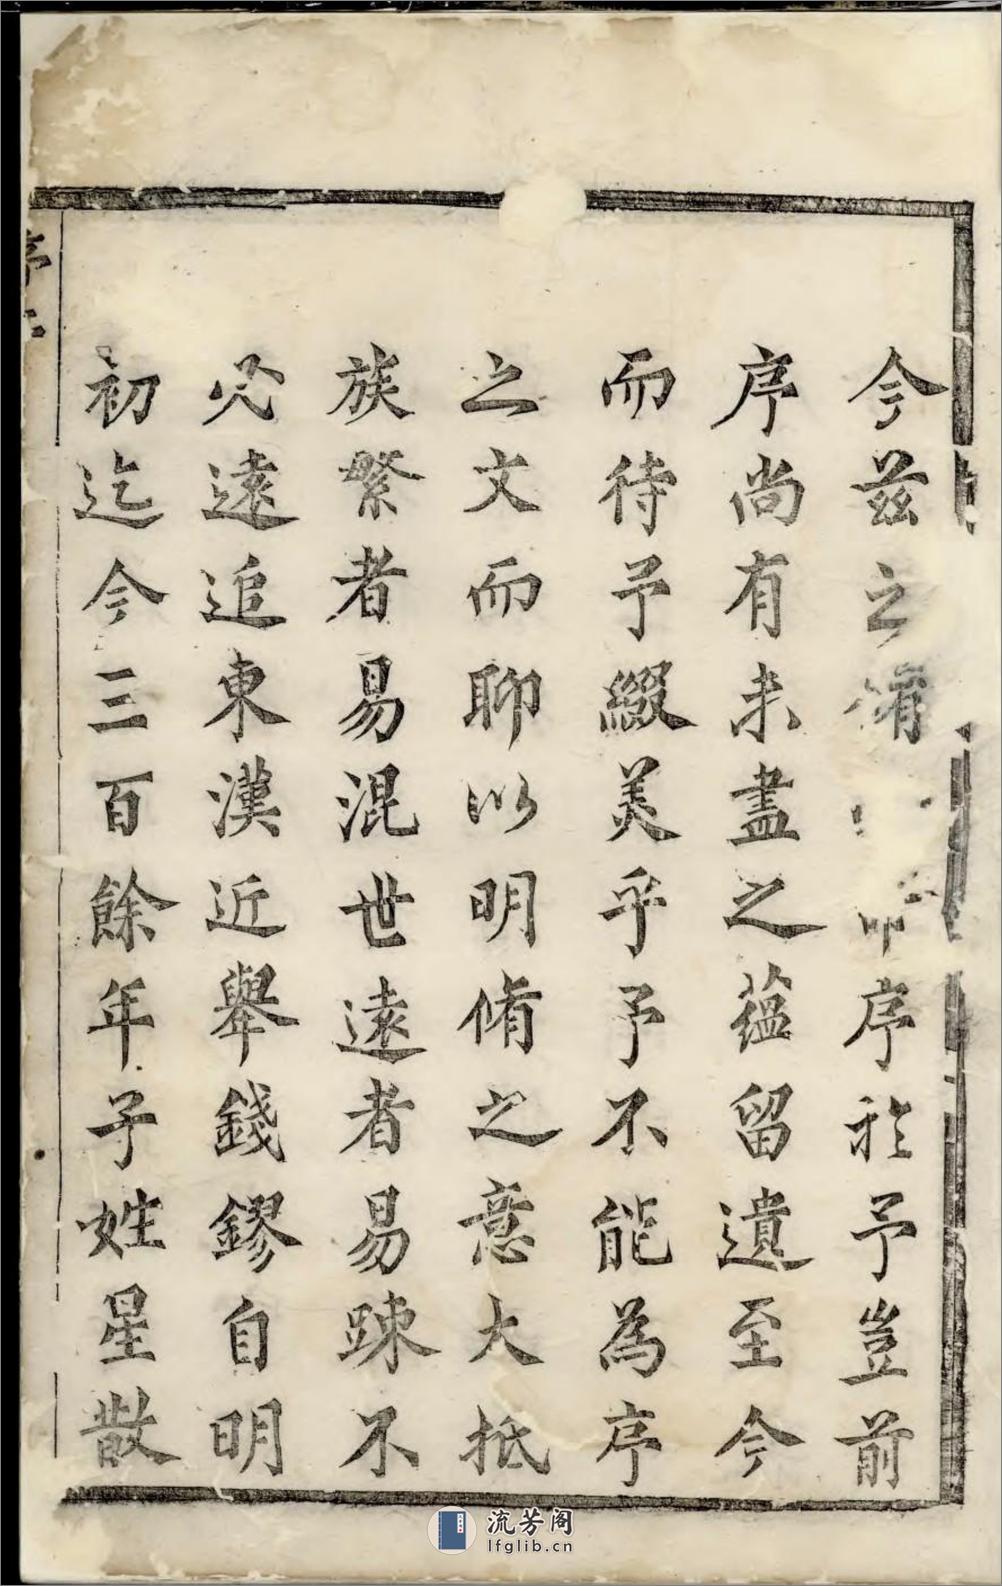 今兹之脩序於予豈前
序尚有未盡之蘊留遺至今
而待予綴美乎予不能為序
之文而聊以明脩之意大抵
族繁者易混世遠者易踈不
必遠追東漢近舉錢鏐自明
初迄今三百餘年子姓星散
流芳阁
lfglib.cn